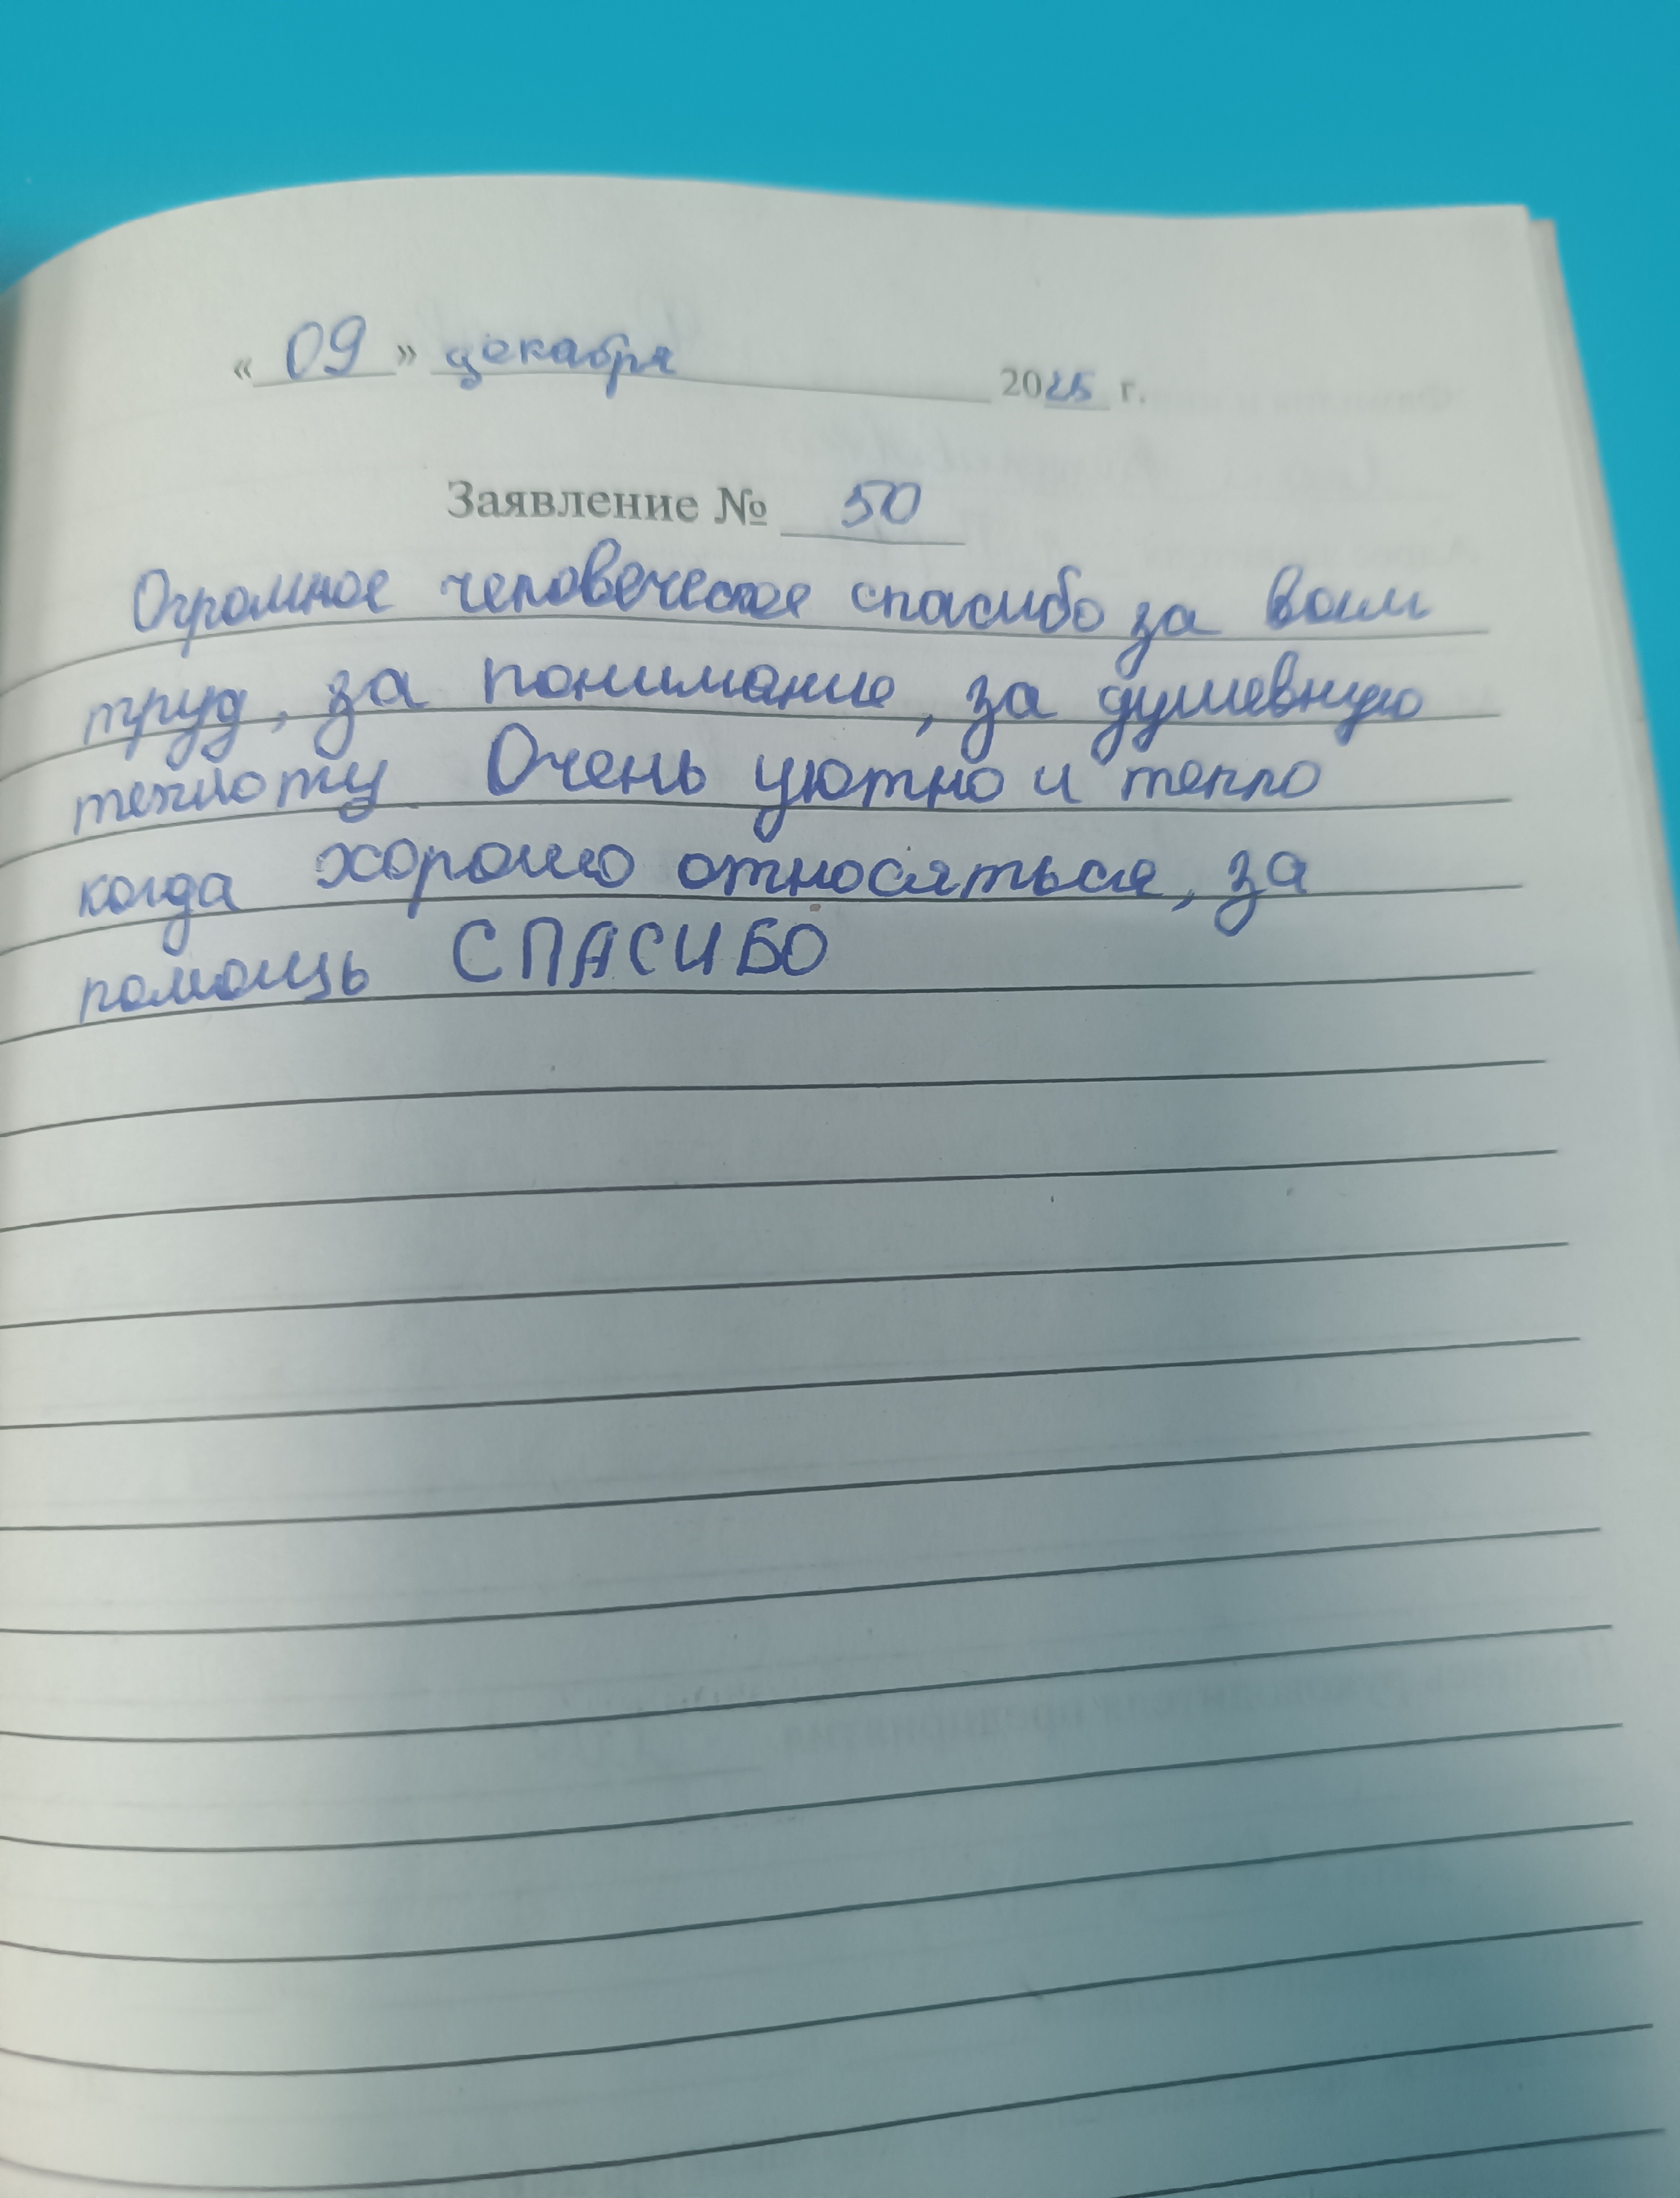 « 09 » декабря 2025 г.
Заявление № 50
Огромное человеческое спасибо за ваш
труд, за понимание, за душевную
теплоту Очень уютно и тепло
когда хорошо относяться, за
помощь СПАСИБО